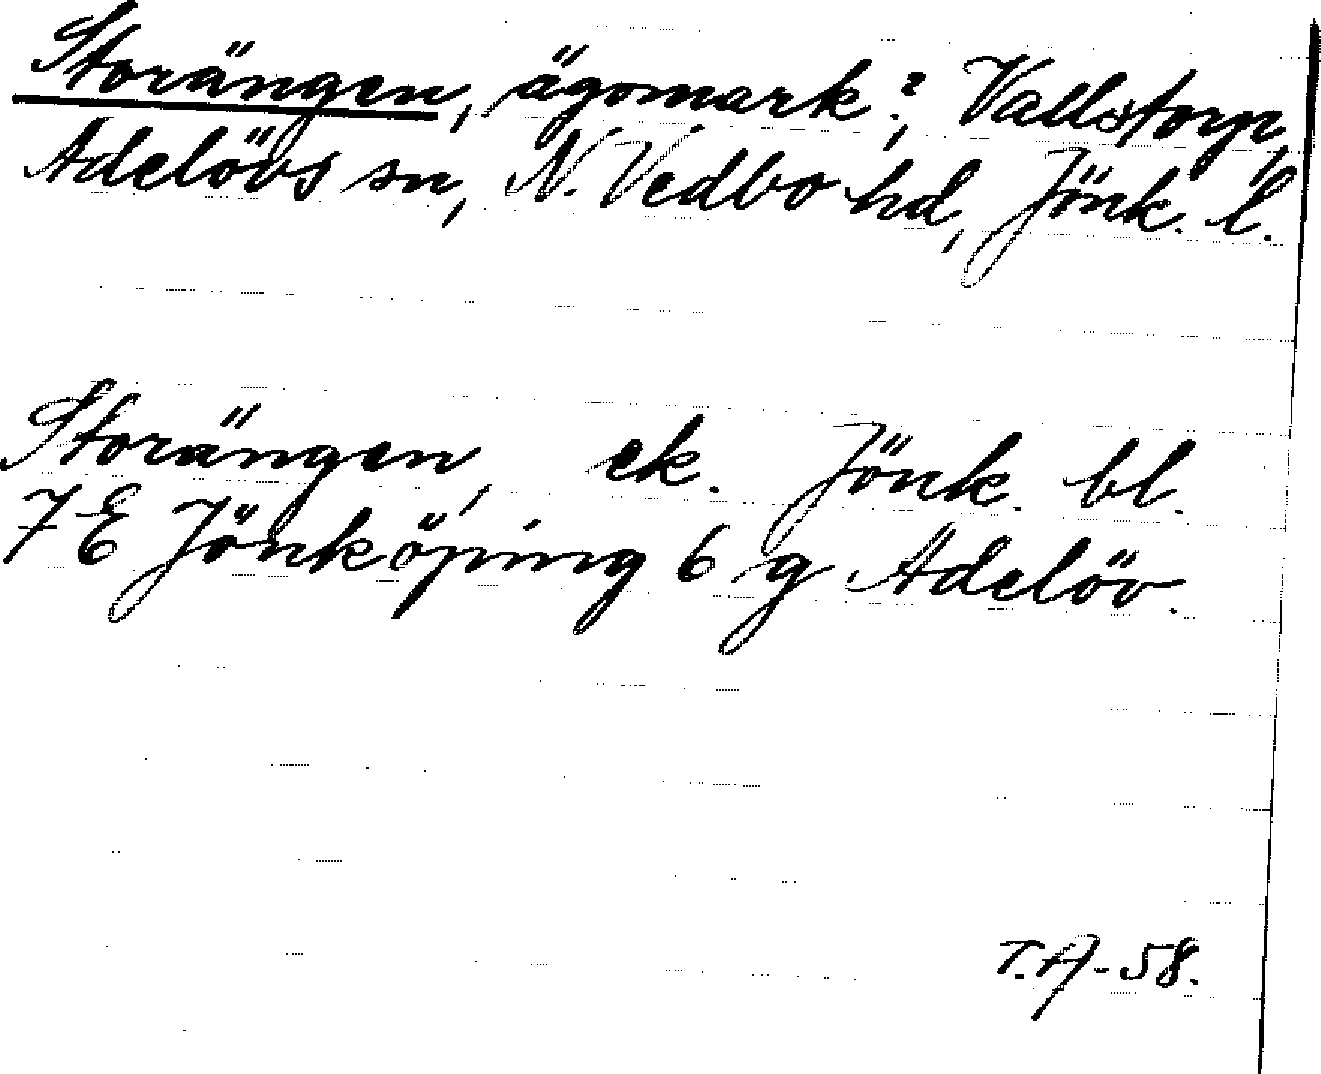 Storängen, ägomark?, Vallstorp,
Adelövs sn, N. Vedbo hd, Jönk. l.
Storängen, ek. Jönk. bl.
7E Jönköping 6 g Adelöv.
T.A-58.